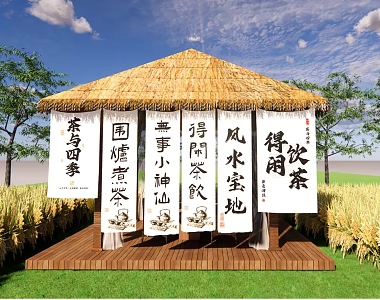 茶与四季
围爐煮茶
無事小神仙
得閑茶飲
风水宝地
得闲
饮茶